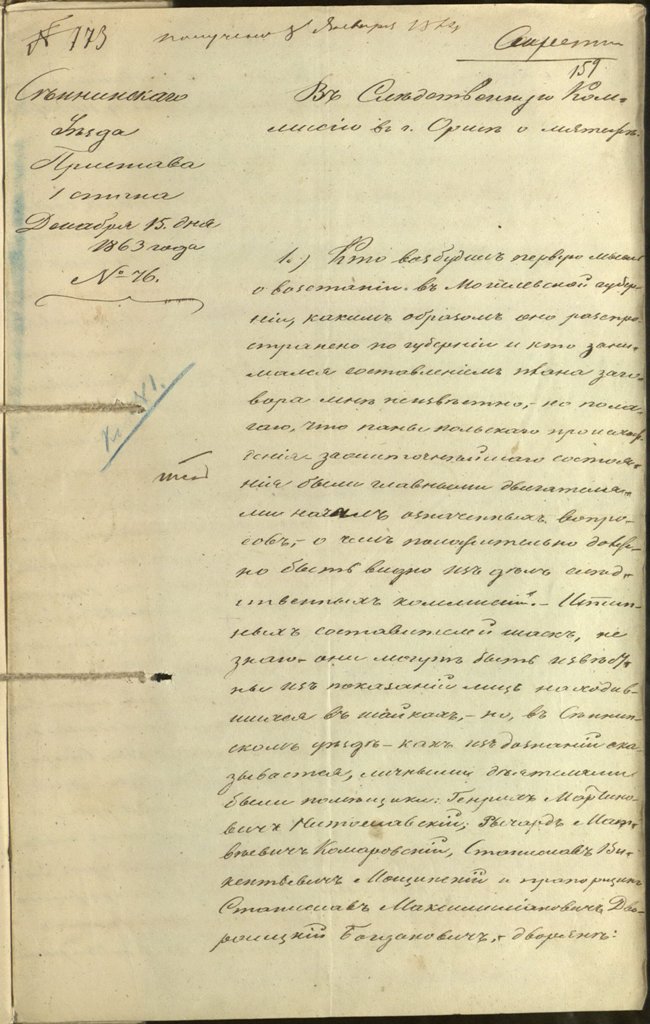 № 173
получено 8 Января 1864
Секретно
159
Сѣннинскаго
Уѣзда
Пристава
1 стана
Декабря 15 дня
1863 года
№ 76.
Въ Слѣдственную Ком-
мисію въ г. Оршѣ о мятежѣ.
1.) Кто возбудилъ первую мысль
о возстаніи въ Могилевской губер-
ніи, какимъ образомъ оно распро-
странено по губерніи и кто зани-
мался составленіемъ плана заго-
вора мнѣ неизвѣстно, но пола-
гаю, что паны польскаго происхож-
денія
ніи были главными двигателя-
ми началъ означенныхъ вопро-
совъ, о чемъ положительно долж-
но быть видно изъ дѣлъ слѣд-
ственныхъ коммисій. Истин-
ныхъ составителей шаекъ, не
знаю, они могутъ быть извѣст-
ны изъ показаній лицъ находив-
шихся въ шайкахъ, но, въ Сѣннин-
скомъ уѣздѣ какъ изъ дознаній ока-
зывается, личными дѣятелями
были помѣщики: Генрихъ Мартино-
вичъ Нитославскій, Рычардъ Мат-
вѣевичъ Комаровскій, Станиславъ Ви-
кентьевичъ Мощинскій и прапорщикъ
Станиславъ Максимиліановичъ Дво-
рицкій Богдановичъ, дворяне: